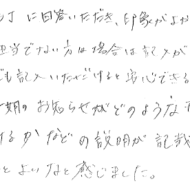 丁に回答いただき、印象がよか
担当でない方は場合は記入が
も記入いただけると安心できる
期のお知らせがどのような
るかなどの説明が記載
とよいなと感じました。